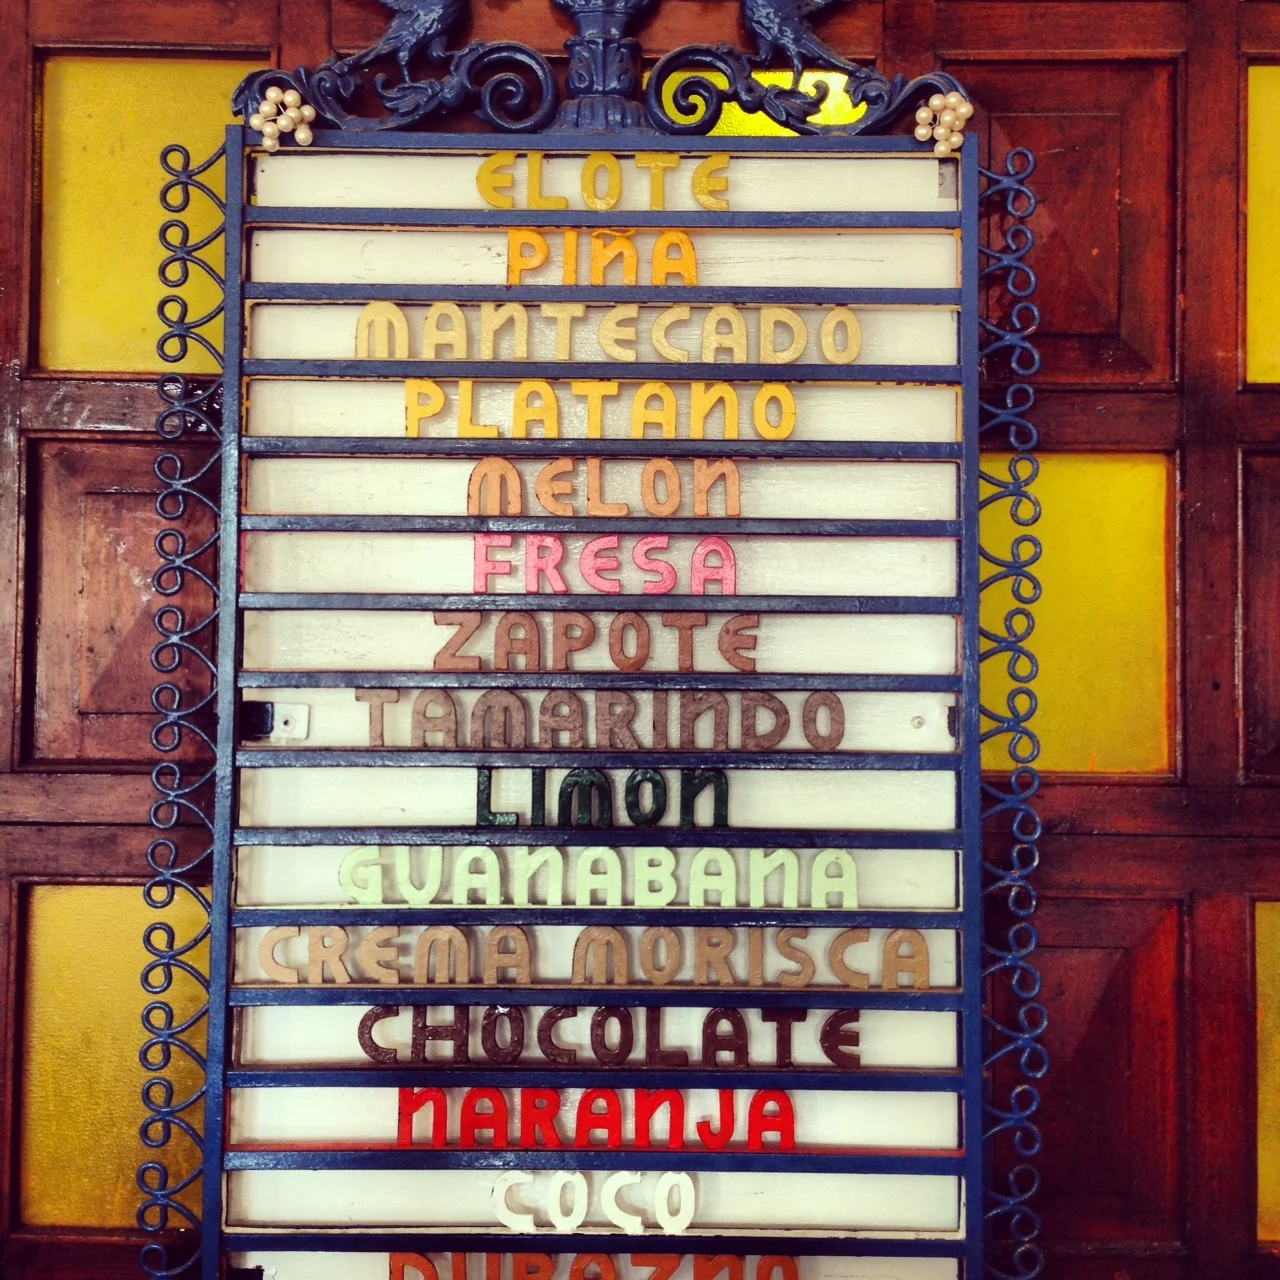 ELOTE
PIÑA
MANTECADO
PLATANO
MELON
FRESA
ZAPOTE
TAMARINDO
LIMON
GUANABANA
CREMA MORISCA
CHOCOLATE
NARANJA
COCO
DURAZNO